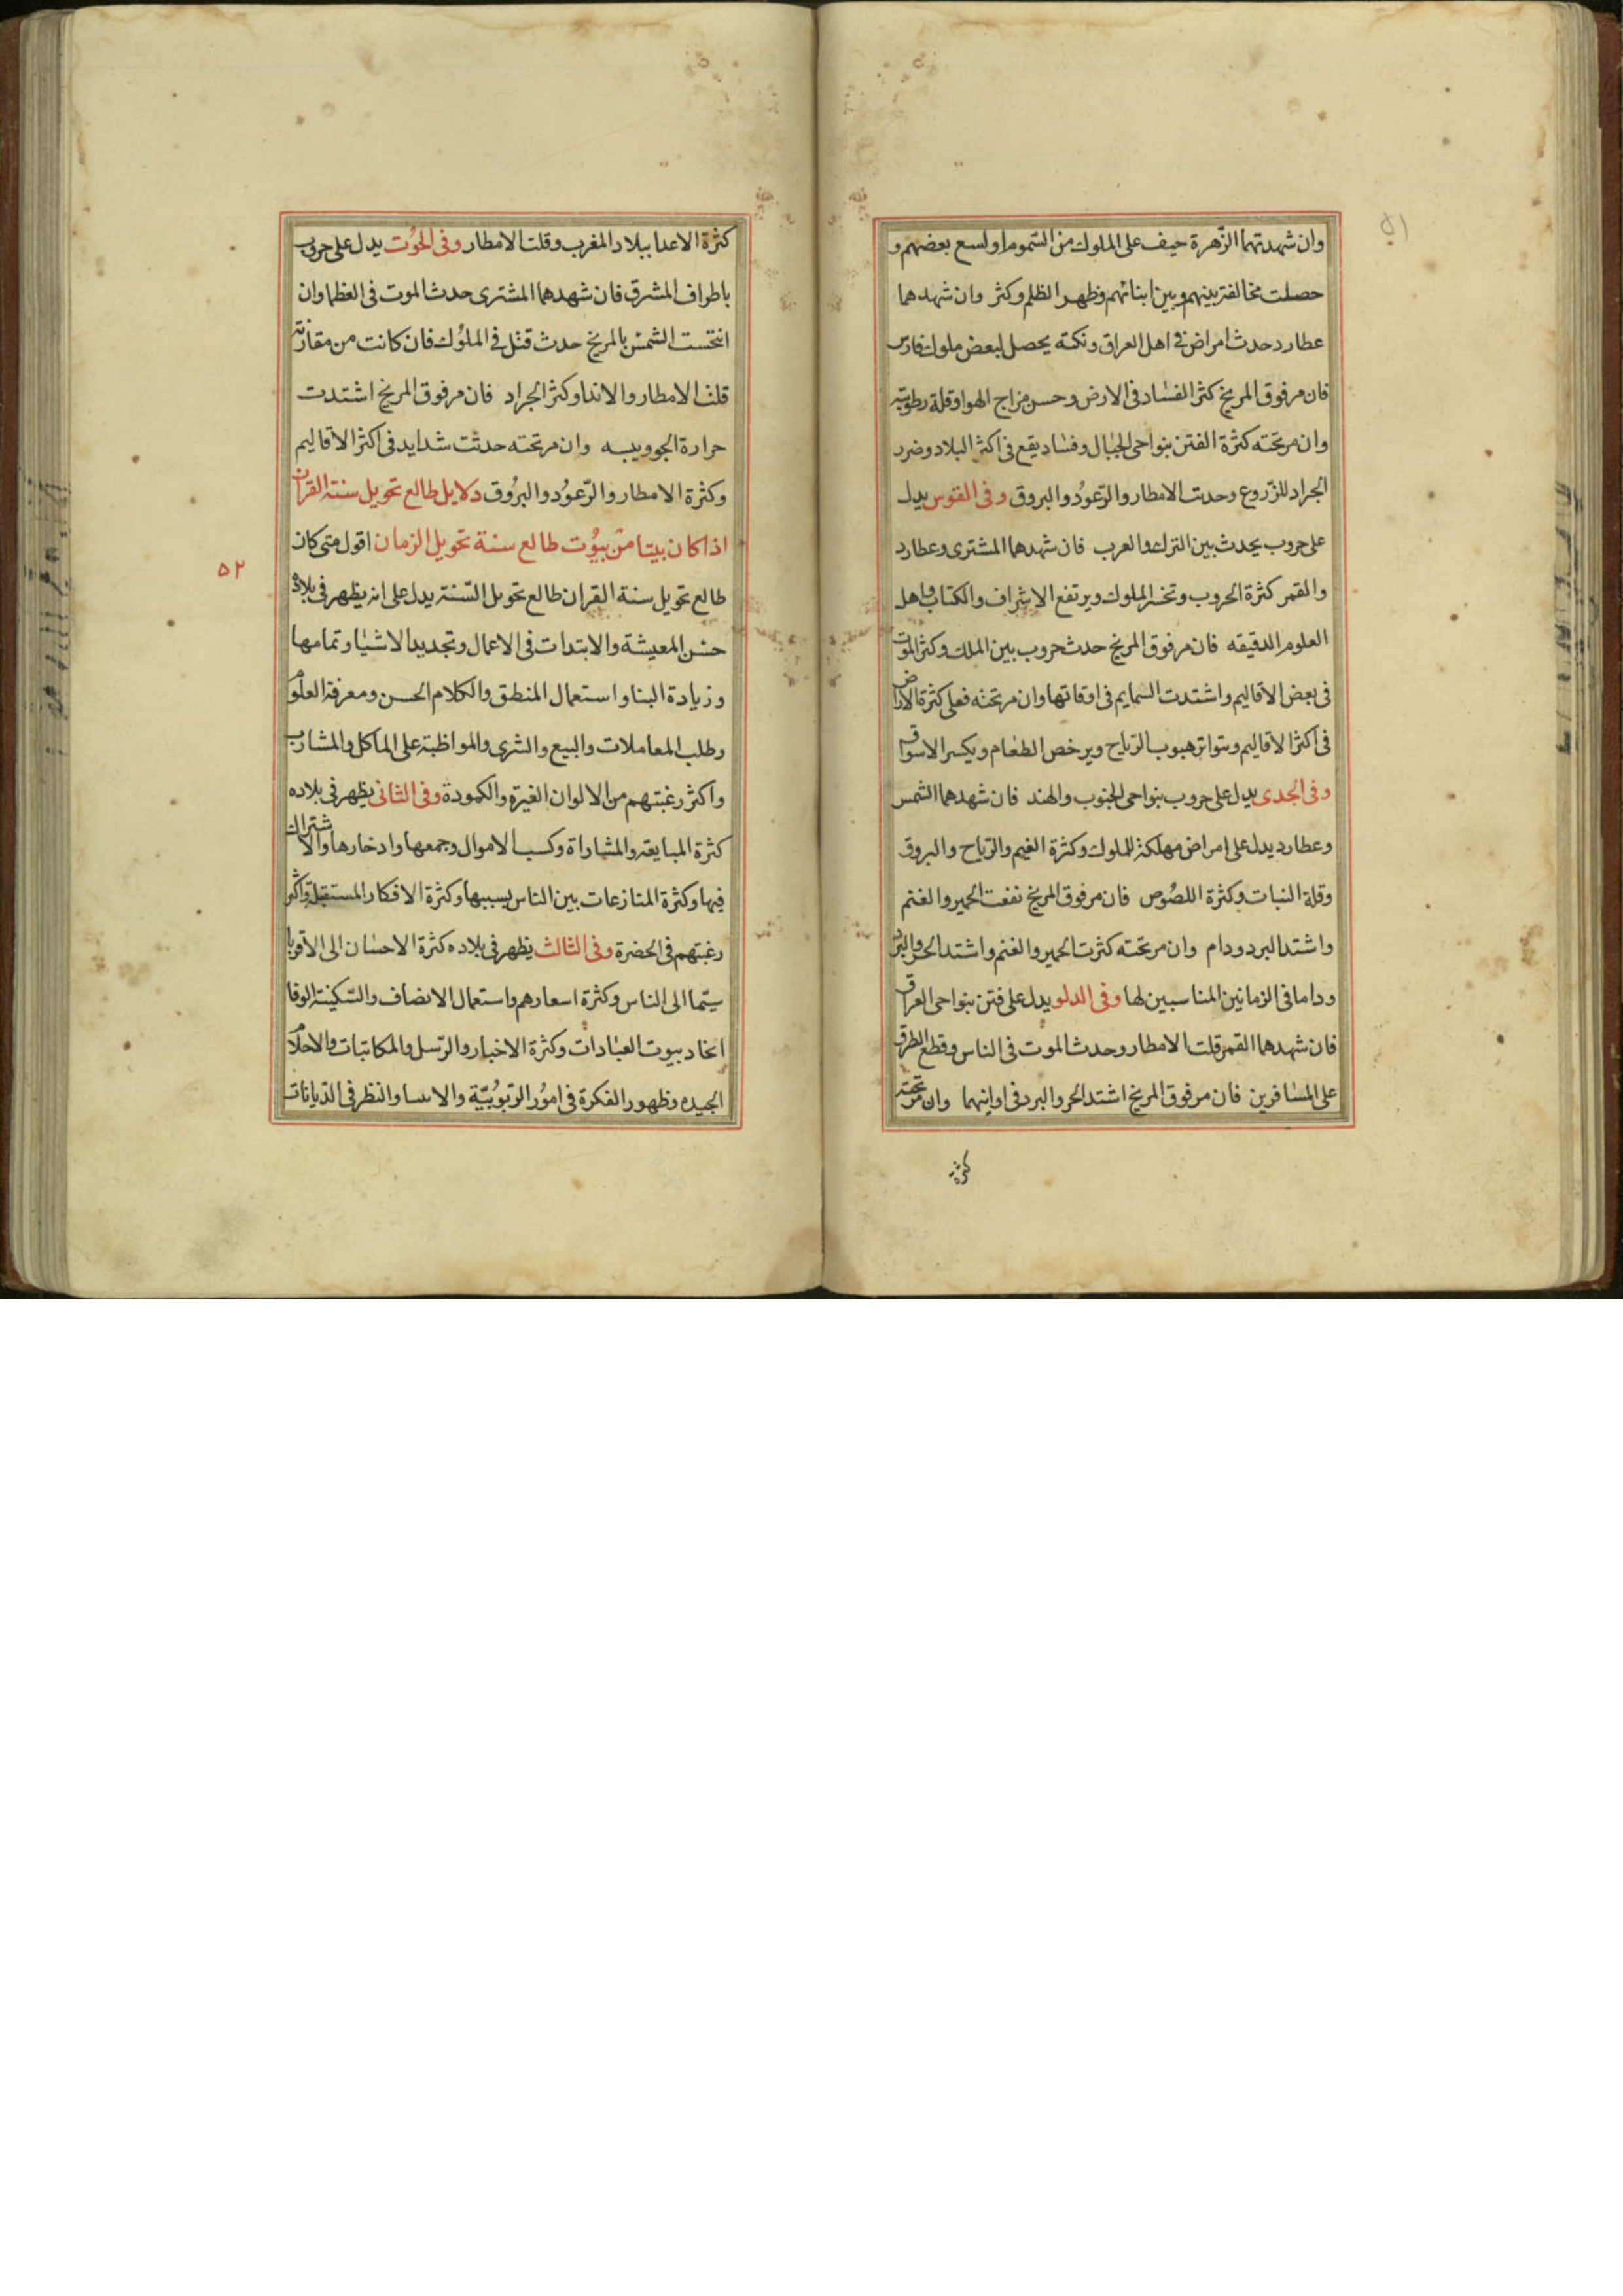 ٥١
وان شهدتهما الزهرة حيف على الملوك من السموم او لسع بعضهم و
حصلت مخالفة بينهم وبين ابنائهم وظهر الظلم وكثر وان شهدهما
عطارد حدث امراض في اهل العراق ونكبة يحصل لبعض ملوك فارس
فان مر فوق المريخ كثر الفساد في الارض وحسن مزاج الهوا وقلة رطوبته
وان مر تحته كثرة الفتن بنواحى الجبال وفساد يقع فى اكثر البلاد وضرر
الجراد للزروع وحدت الامطار والرعود والبروق وفى القوس يدل
على حروب يحدث بين الترك والعرب فان شهدهما المشترى وعطارد
والقمر كثرة الحروب وتخـ الملوك ويرتفع الاشراف والكتاب واهل
العلوم الدقيقه فان مر فوق المريخ حدث حروب بين الملك وكثر الموت
فى بعض الاقاليم واشتدت السمايم فى اوقاتها وان مر تحته فعلى كثرة الامراض
فى اكثر الاقاليم وتواتر هبوب الرياح ويرخص الطعام ويكسر الاسواق
وفى الجدى يدل على حروب بنواحى الجنوب والهند فان شهدهما الشمس
وعطارد يدل على امراض مهلكة للملوك وكثرة الغيم والرياح والبروق
وقلة النبات وكثرة اللصوص فان مر فوق المريخ نفعت الحمير والغنم
واشتد البرد ودام وان مر تحته كثرت الحمير والغنم واشتد الحر والبرد
وداما فى الزمانين المناسبين لها وفى الدلو يدل على فتن بنواحى العراق
فان شهدهما القمر قلت الامطار وحدث الموت فى الناس وقطع الطرق
على المسافرين فان مر فوق المريخ اشتد الحر والبرد فى اوانهما وان مر تحته
كثرة
كثرة الاعدا ببلاد المغرب وقلت الامطار وفى الحوت يدل على حروب
باطراف المشرق فان شهدهما المشترى حدث الموت فى العظما وان
انتحست الشمس بالمريخ حدث قتل فى الملوك فان كانت من مقارنة
قلت الامطار والاندا وكثر الجراد فان مر فوق المريخ اشتدت
حرارة الجو ويبسه وان مر تحته حدثت شدايد فى اكثر الاقاليم
وكثرة الامطار والرعود والبروق دلايل طالع تحويل سنة القران
اذا كان بيتا من بيوت طالع سنة تحويل الزمان اقول متى كان
٥٢
طالع تحويل سنة القران طالع تحويل السنة يدل على انه يظهر فى بلاده
حسن المعيشة والابتدات فى الاعمال وتجديد الاشيا وتمامها
وزيادة البنا واستعمال المنطق والكلام الحسن ومعرفة العلوم
وطلب المعاملات والبيع والشرى والمواظبة على الماكل والمشارب
واكثر رغبتهم من الالوان الغبرة والكمودة وفى الثانى يظهر فى بلاده
كثرة المبايعة والمشاراة وكسب الاموال وجمعها وادخارها والاشتراك
فيها وكثرة المنازعات بين الناس بسببها وكثرة الافكار المستقبلة واكثر
رغبتهم فى الخضرة وفى الثالث يظهر فى بلاده كثرة الاحسان الى الاقربا
سيما الى الناس وكثرة اسعارهم واستعمال الانصاف والسكينة الوفا
اتخاد بيوت العبادات وكثرة الاخبار والرسل والمكاتبات والاحلام
الجيده وظهور الفكرة فى امور الربوبية والاسا والنظر فى الديانات